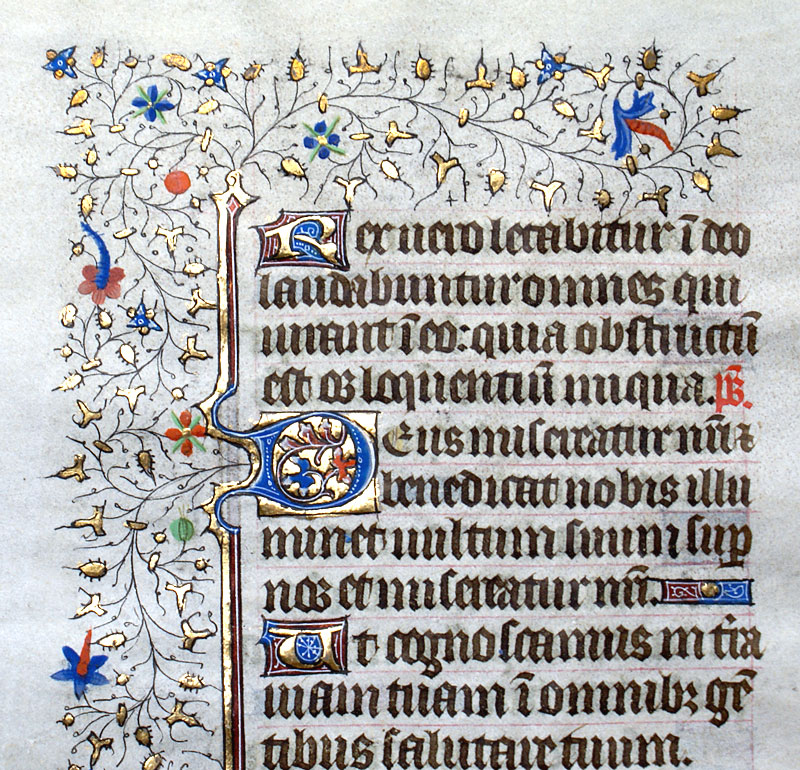 Rex uero letabitur ī deo
laudabuntur omnes qui
iurant ī eo: quia obstructū
est os loquentiū iniqua. ps̄.
Deus misereatur nr̄i ⁊
benedicat nobis illu
minet uultum suum sup
nos et misereatur nr̄i.
Ut cognoscamus in t̄ra
uiam tuam ī omnibꝫ gē
tibus salutare tuum.